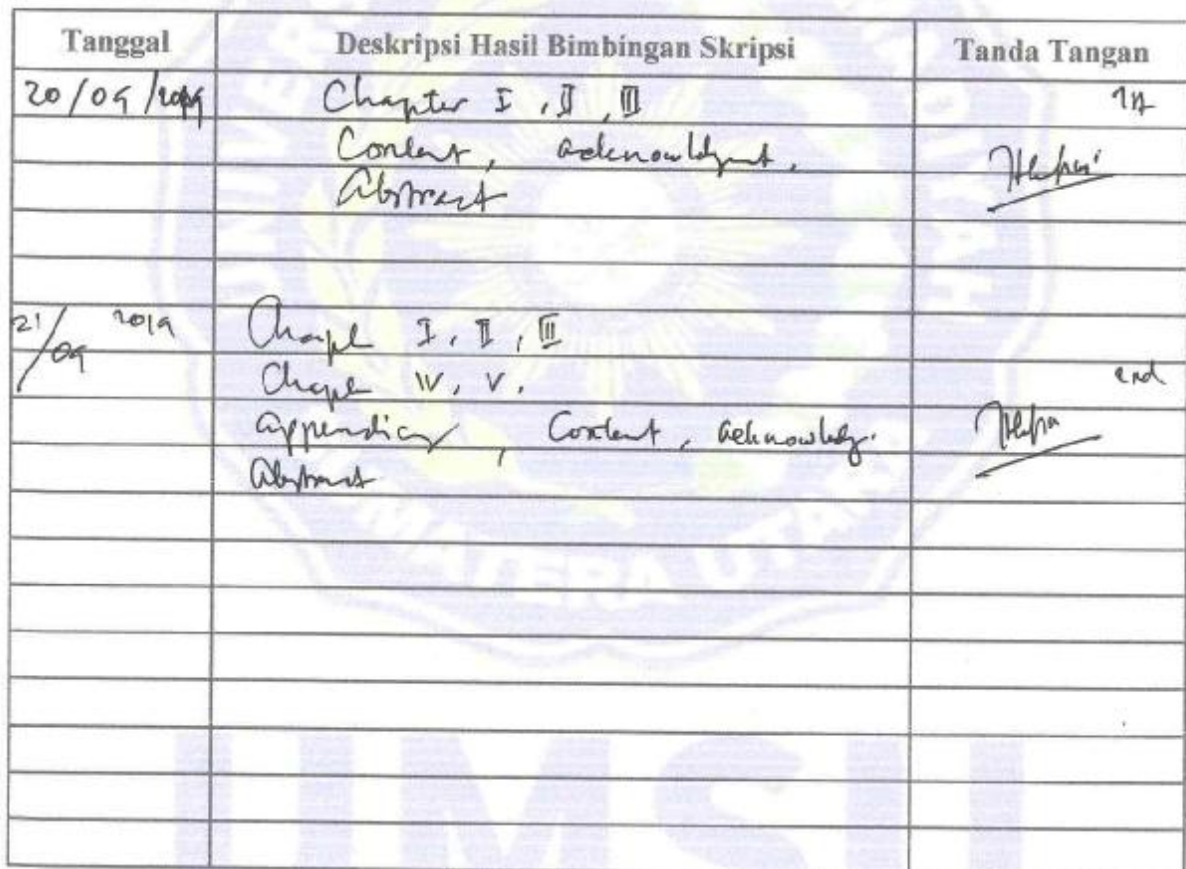 Tanggal Deskripsi Hasil Bimbingan Skripsi Tanda Tangan
20/09/2019 Chapter I, II, III 1st
Content, acknowledgment,
Abstract
21/09 2019 Chapter I, II, III
Chapter IV, V. 2nd
appendices, Content, acknowledg.
Abstract
UMSU